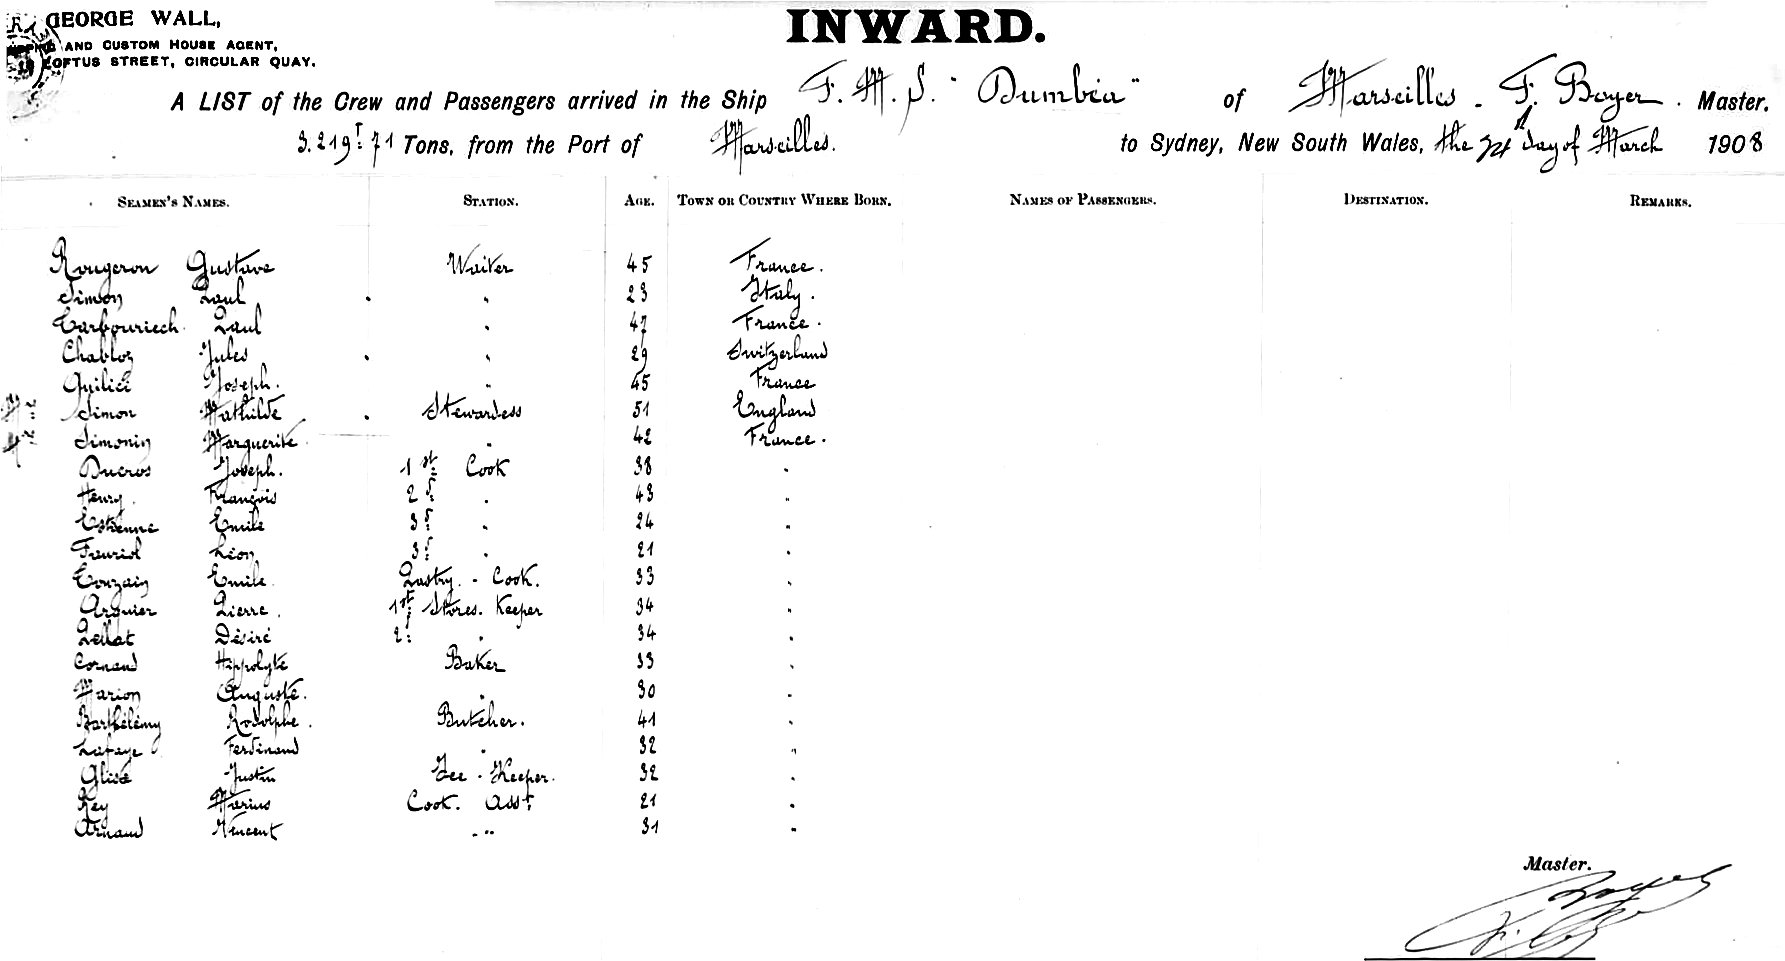 GEORGE WALL,
AND CUSTOM HOUSE AGENT,
LOFTUS STREET, CIRCULAR QUAY.
INWARD.
A LIST of the Crew and Passengers arrived in the Ship F. M. S. "Dumbéa" of Marseilles - F. Boyer. Master.
3.219 T: 71 Tons, from the Port of Marseilles. to Sydney, New South Wales, the day of March 1908
SEAMEN'S NAMES. STATION. AGE. TOWN OR COUNTRY WHERE BORN. NAMES OF PASSENGERS. DESTINATION. REMARKS.
Rougeron Gustave Waiter 45 France.
Simon Paul . " 23 Italy.
Tarbouriech. Paul " 47 France.
Chabloz Jules . " 29 Switzerland
Quilici Joseph. " 45 France
Simon Mathilde . Stewardess 51 England
Simonin Marguerite. " 42 France.
Ducros Joseph. 1st Cook 38 "
Henry. François 2 " 43 "
Estienne Emile 3 " 24 "
Fauriol Léon 3 " 21 "
Touzain Emile. Pastry - Cook. 33 "
Arquier Pierre. 1st Stores. Keeper 34 "
Peillat Désiré 2: " 34 "
Cornand Hippolyte Baker 33 "
Marion Auguste. " 30 "
Barthélémy Rodolphe. Butcher. 41 "
Lafaye Ferdinand " 32 "
Glise Justin Ice - Keeper. 32 "
Rey Marius Cook. Asst. 21 "
Arnaud Vincent - " " 31 "
Master.